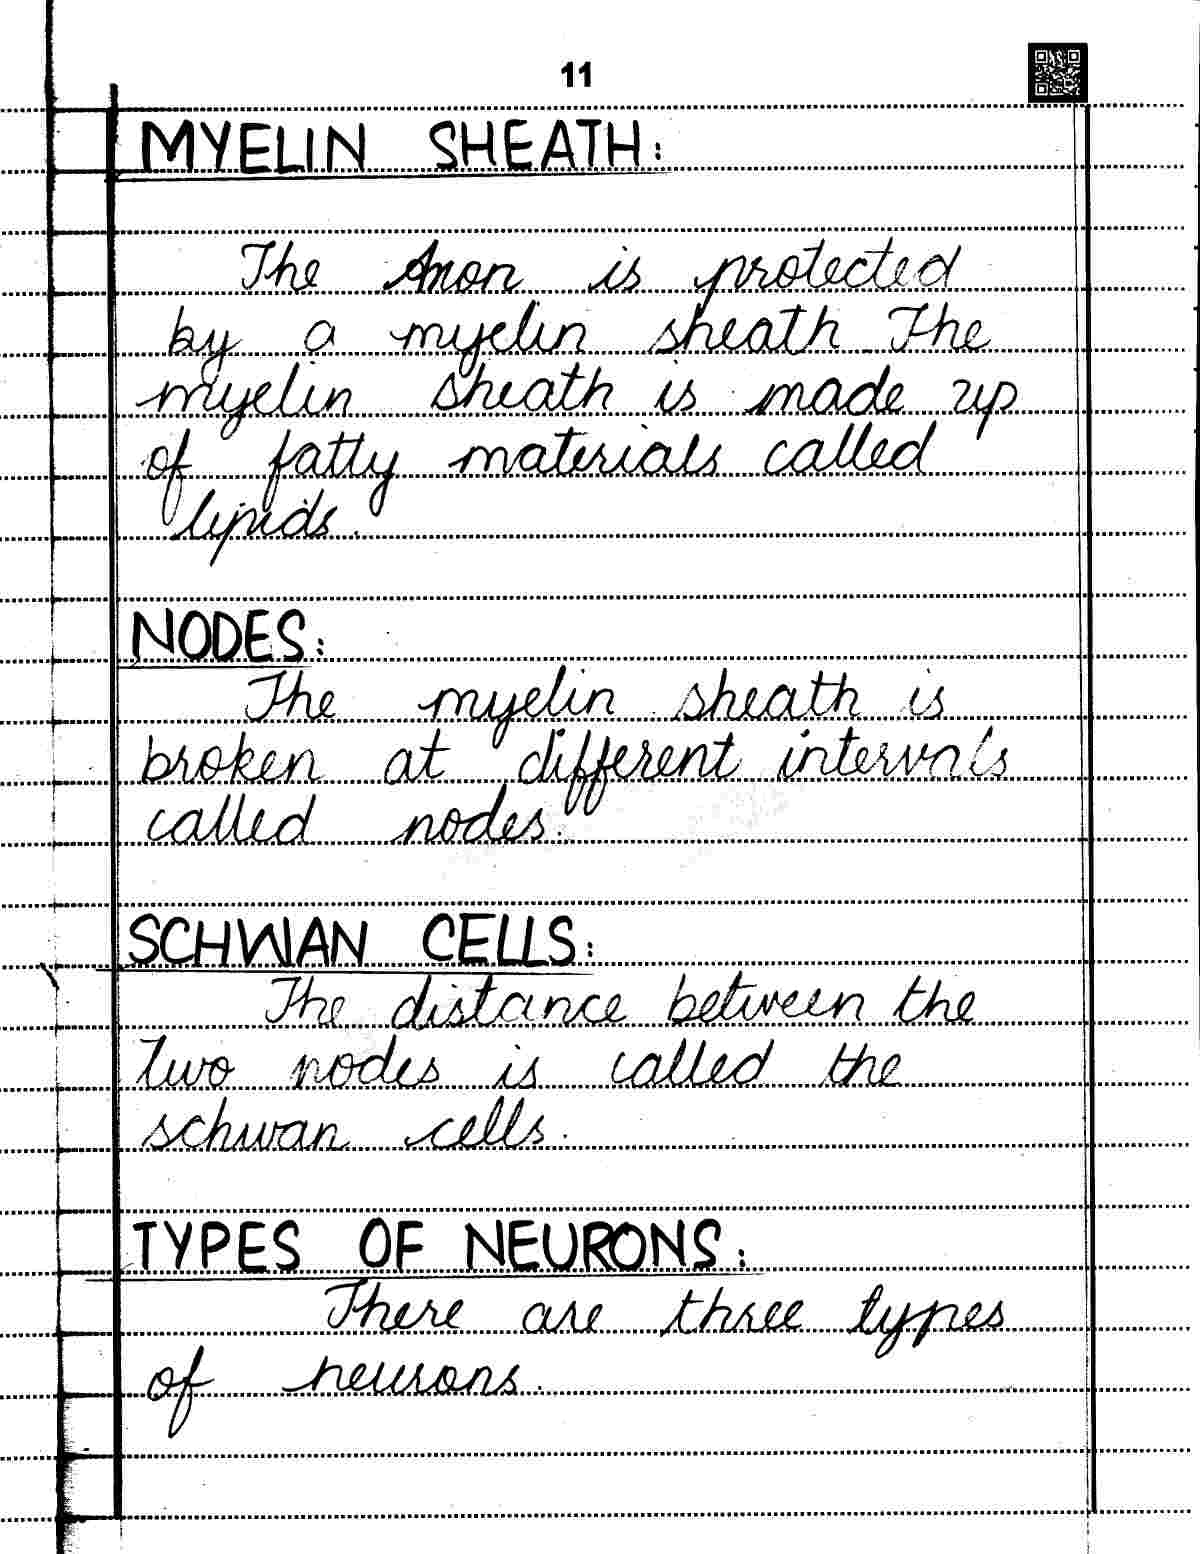 11
MYELIN SHEATH:
The Axon is protected
by a myelin sheath. The
myelin sheath is made up
of fatty materials called
lipids.
NODES:
The myelin sheath is
broken at different intervals
called nodes.
SCHWAN CELLS:
The distance between the
two nodes is called the
schwan cells.
TYPES OF NEURONS:
There are three types
of neurons.